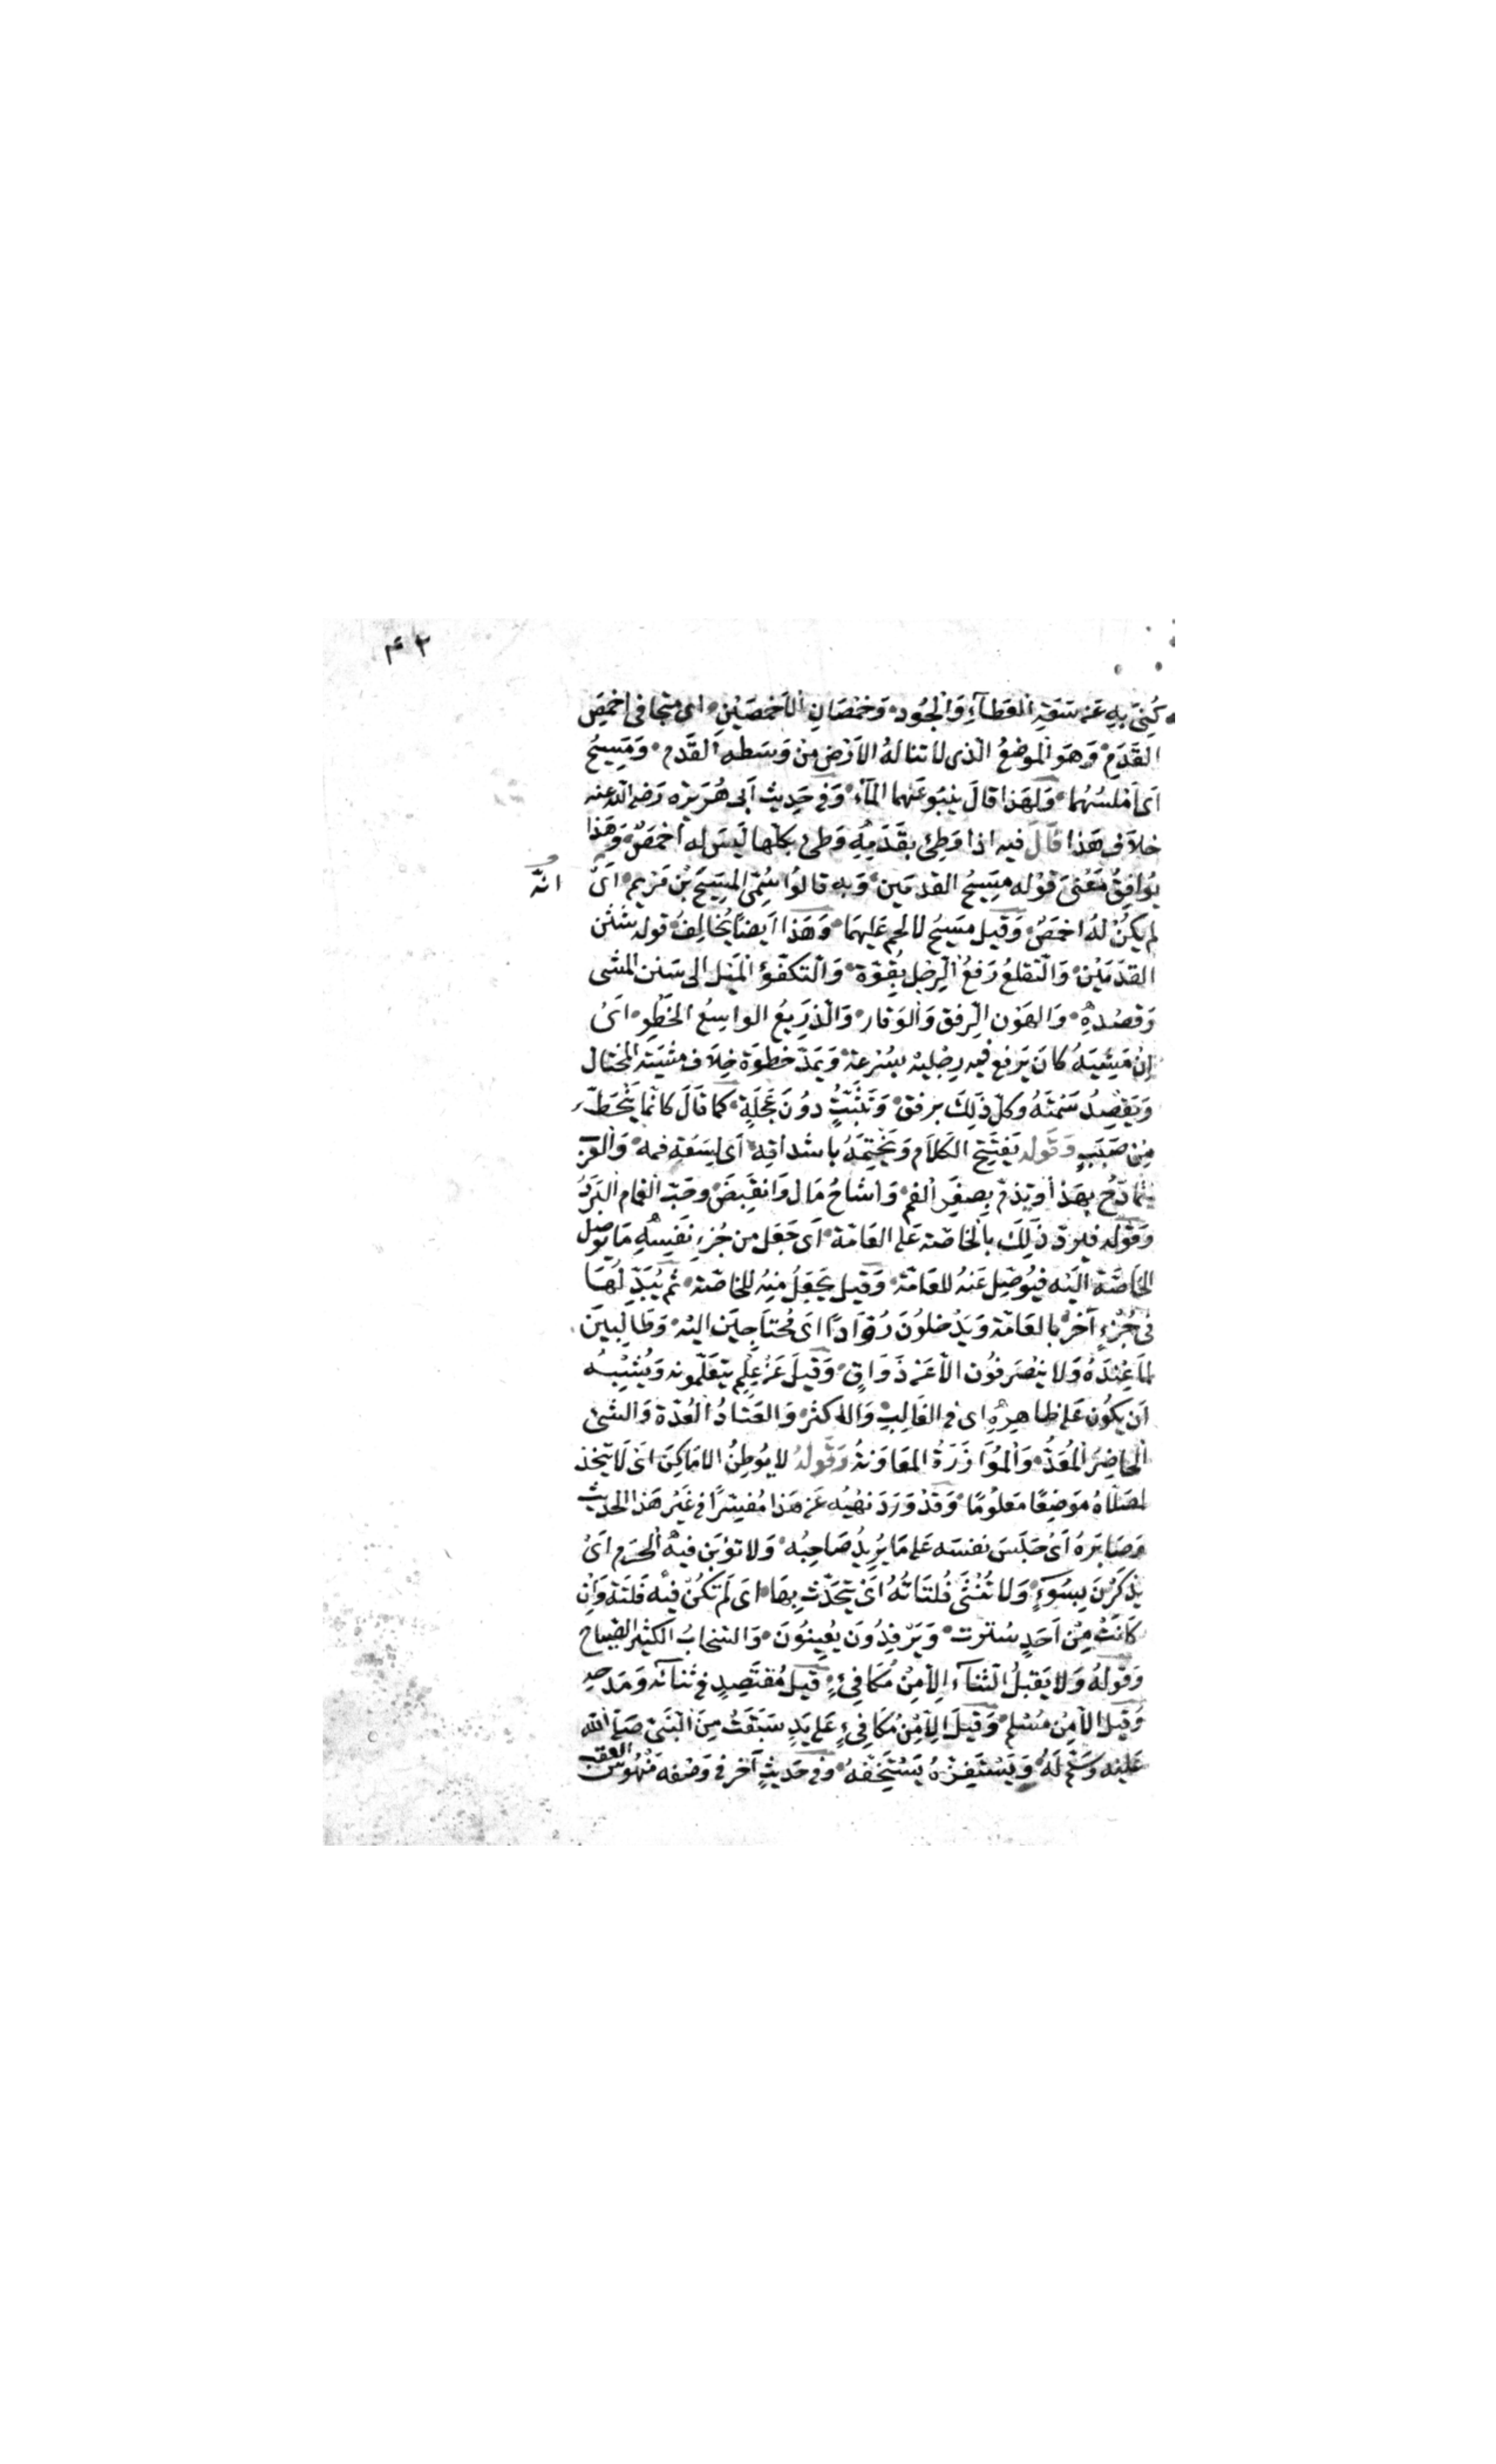 ٤٣
كُنِّيَ بِهِ عَن سَعَةِ العَطَآءِ وَالجُود وَخُمْصَانِ الأَخْمَصَيْنِ اى متجافى اخمَصِ
القَدَمِ وَهوَ الموضعُ الذى لا تنالهُ الأرْض مِنْ وَسَطِ القَدم وَمَسِيحُ
اَى اَملسُهُما وَلِهَذا قالَ يَنْبُو عَنهما المآء وَفى حَدِيث اَبى هُرَيْرة رَضى الله عنه
خلاف هَذا قَالَ فيه اذا وَطِئَ بقَدَمِهِ وَطئَ بكلّها لَيسَ له اَخْمَصٌ وَهَذا
يُوَافِقُ مَعْنىَ قَوْله مَسِيحُ القدمَين وَبه قالوُا سُمّىَ المسِيحَ بْن مَرْيم اَىْ انّهُ
لم يكنْ لهُ اخمَصٌ وَقيل مَسيحُ لا لحم عَليهمَا وَهَذا اَيضًا يُخالِفُ قوله شثن
القدَمَيْن وَالتقلعُ رَفعُ الرِجل بِقُوّة وَالتكفّؤ المَيْل الى سَنن المشى
وَقصْدِهِ وَالهَوْن الرِفق وَالوَقار وَالذرِيعُ الواسِعُ الخَطْوِ اَىْ
اِنّ مَشْيَهُ كانَ يَرفع فيه رِجليْه بسُرْعة وَيَمدّ خطوَهُ خِلاف مشْيَة المختال
وَيَقصِدُ سَمتَهُ وكلّ ذلِكَ برفق وَتَثَبُّتٍ دوُنَ عَجَلَةٍ كما قالَ كانّما يَنْحَطّ
مِن صَبَبٍ وَقوله يَفتَتِح الكلاَم وَيَخْتِمهُ باشداقه اَى لِسَعَةِ فمه وَالعَرَب
تتمادَحُ بهَذا وَتذمّ بِصِغَر الفم وَاشاحَ مَال وَانقَبضَ وحَبّ الغمام البَرَدُ
وَقوله فيرد ذلِكَ بالخاصّة عَلى العَامّة اَى جَعَل من جُزء نَفسِهِ مَا يوصل
الخاصّة الَيْه فيُوصِل عَنهُ للعَامّة وَقيل يَجعَلُ منهُ للخاصّة ثم يُبَدِّلُهَا
فى جُزْءٍ آخرَ بالعَامّة وَيَدْخلوُنَ رُوَّادًا اَى مُحتاجِيَن اليه وَطَالِبيَن
لما عِندَهُ وَلا يَنْصَرفُون الاّ عَن ذَوَاقٍ وَقيلَ عَنْ عِلم يتَعَلّمونه وَيُشْبِهُ
اَن يكوُن عَلى ظاهِرهِ اى فى الغَالِبِ وَالأكثر وَالعَتادُ العُدّة وَالشئ
الحاضِرُ المُعَدُّ وَالموَازَرَةُ المعَاوَنةُ وَقولهُ لا يوُطِنُ الامَاكِنَ اىْ لَا يتّخذ
لصَلاهُ مَوضِعًا مَعلُومًا وَقَدْ وَرَدَ نهْيُه عَن هَذا مُفَسّرًا فى غَيْر هَذا الحَديث
وَصَابَرهُ اَىْ حَبَسَ نفسَه عَلى مَا يُرِيدُ صَاحِبُه وَلا توْبَن فيهِ الحُرَم اَىْ
يذكرْنَ بِسُوَءٍ وَلا تُنْثَى فلتَاتُهُ اَىْ يتَحَدّثُ بِهَا اى لَم تَكُنْ فيْه فَلتَة وَاِن
كَانَتْ مِنْ اَحَدٍ سُترت وَيَرْفِدُونَ يُعِينُونَ وَالسّخابُ الكثير الصّياح
وَقولُهُ وَلا يَقبلُ الثنآء الاّ مِنْ مُكافئٍ قيلَ مُقتَصِدٍ فى ثنائه وَمَدحهِ
وَقيل الاّ مِنْ مُسْلم وَقيلَ الاّ مِنْ مُكافئٍ عَلى يَدٍ سَبَقَتْ مِنَ النّبىّ صَلى الله
عَليْه وَسَلم لَهُ وَيَسْتَفِزّهُ يَسْتَخفّهُ وَفى حَديثٍ آخر فى وَصْفه مَنْهُوس العقب